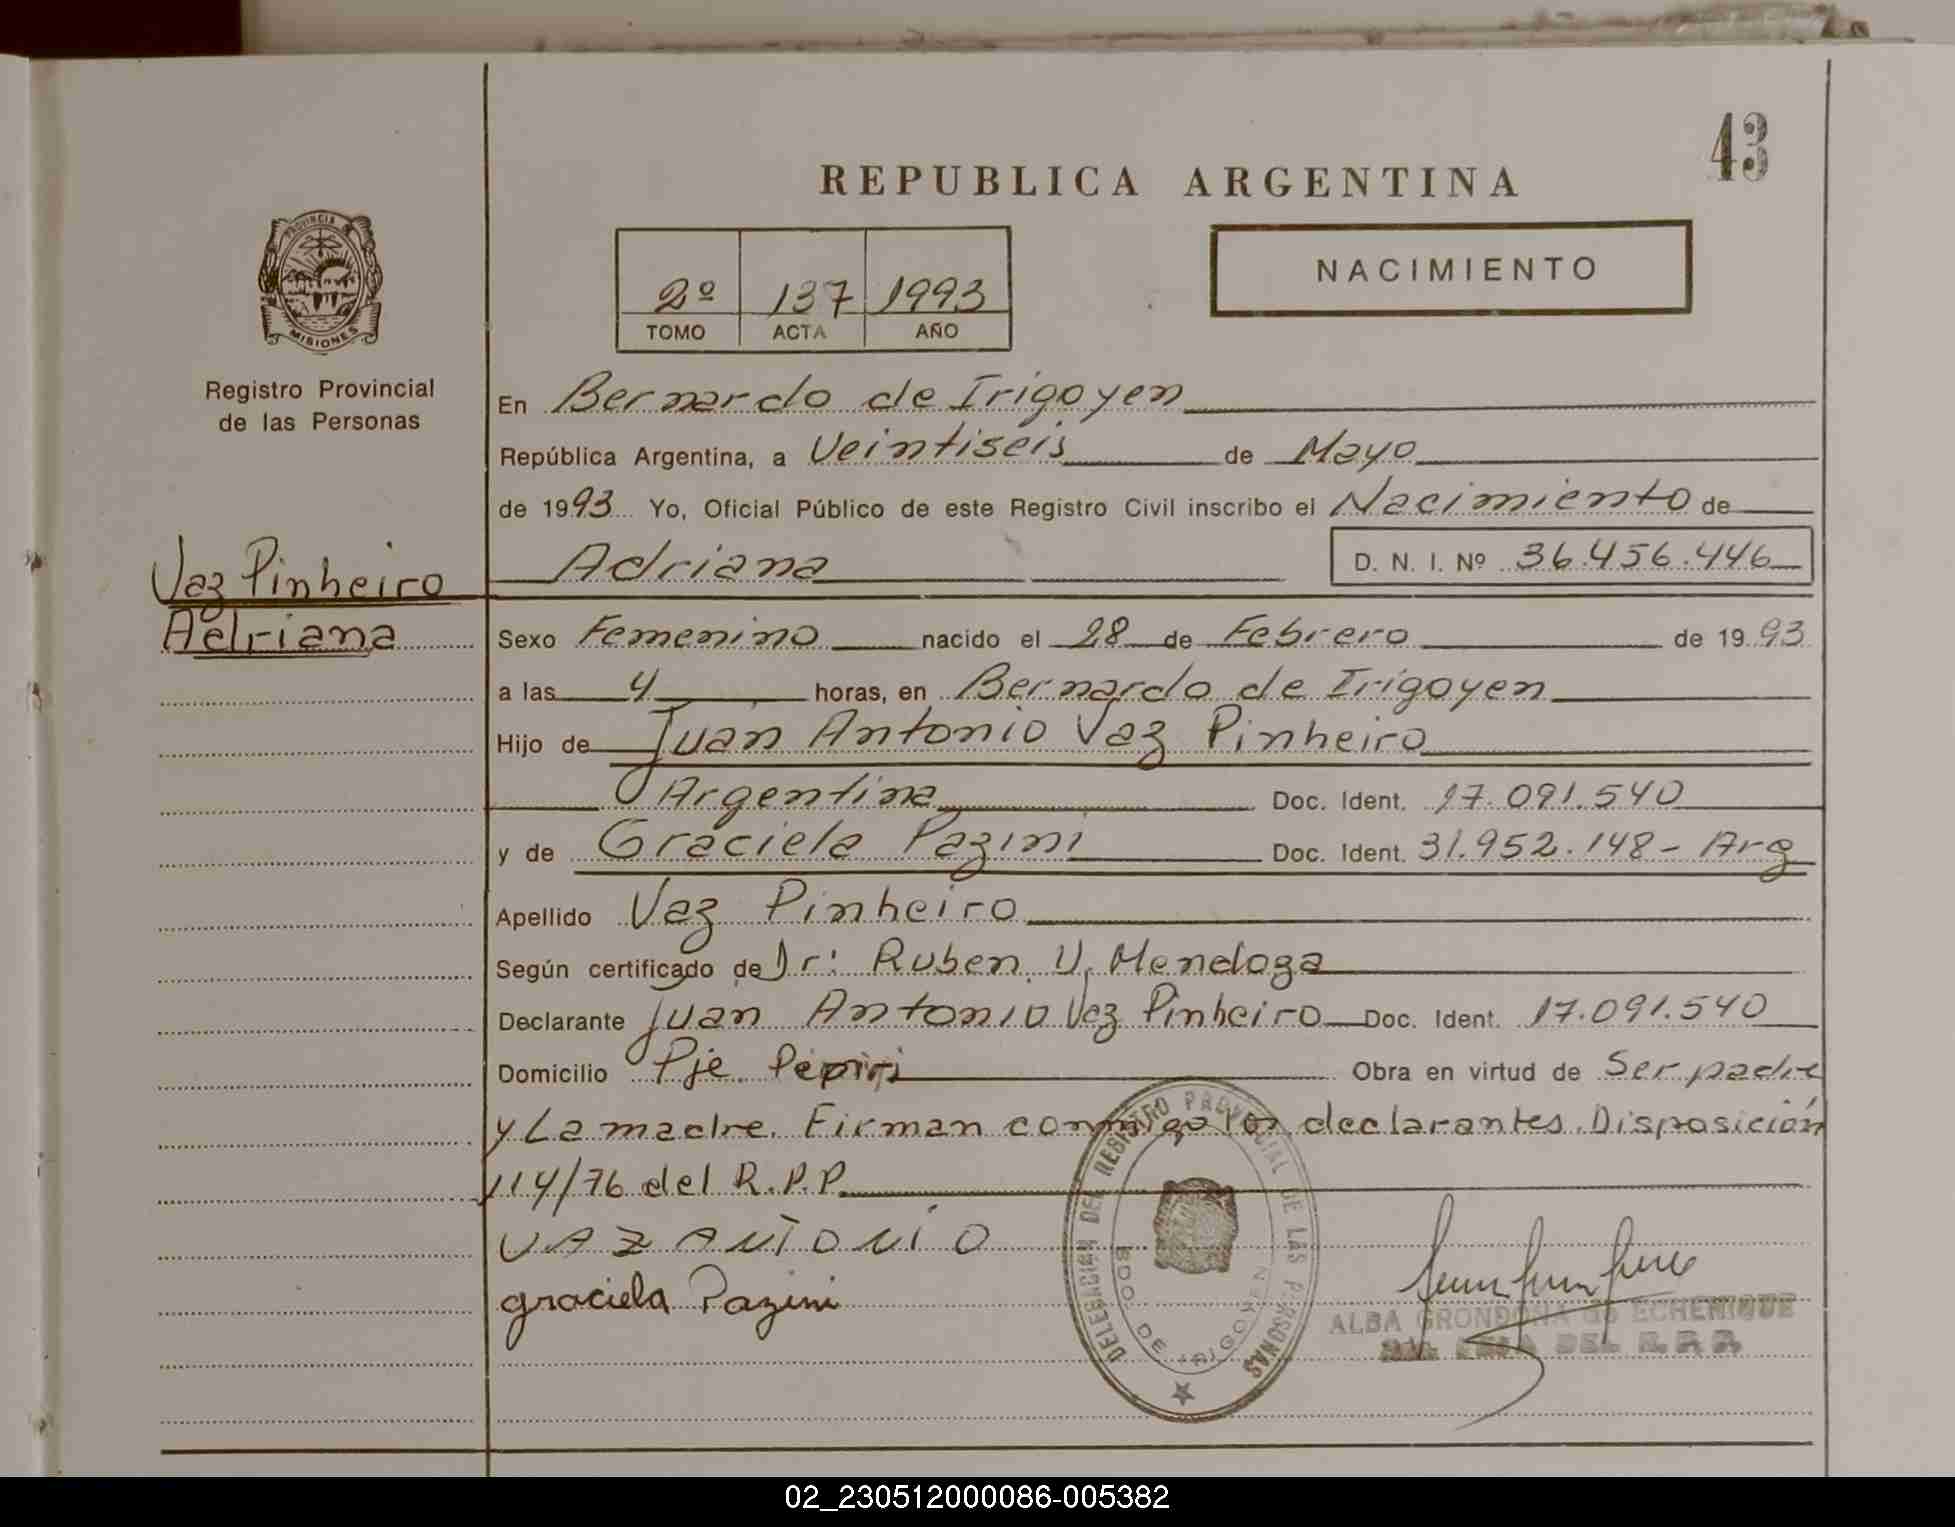 43
REPUBLICA ARGENTINA
PROVINCIA
MISIONES
Registro Provincial
de las Personas
2º 137 1993
TOMO ACTA AÑO
NACIMIENTO
En Bernardo de Irigoyen
República Argentina, a Veintiseis de Mayo
de 1993 Yo, Oficial Público de este Registro Civil inscribo el Nacimiento de
Adriana D. N. I. Nº 36.456.446
Vaz Pinheiro
Adriana
Sexo Femenino nacido el 28 de Febrero de 1993
a las 4 horas, en Bernardo de Irigoyen
Hijo de Juan Antonio Vaz Pinheiro
Argentina Doc. Ident. 17.091.540
y de Graciela Pazini Doc. Ident. 31.952.148 - Arg
Apellido Vaz Pinheiro
Según certificado de Dr: Ruben U. Mendoza
Declarante Juan Antonio Vaz Pinheiro Doc. Ident. 17.091.540
Domicilio Pje Pepiri Obra en virtud de Ser padre
y La madre. Firman conmigo los declarantes. Disposición
114/76 del R.P.P.
VAZ ANTONIO
graciela Pazini
DELEGACIÓN DEL REGISTRO PROVINCIAL DE LAS PERSONAS
BDO. DE IRIGOYEN
ALBA GRONDONA de ECHENIQUE
DEL R.P.P.
02_230512000086-005382